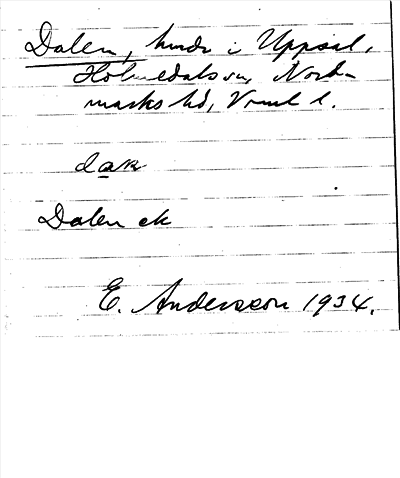 Dalen, hmdr i Uppsal,
Holmedals sn, Nord-
marks hd, Vrml l.
dak
Dalen ek
E. Andersson 1934.